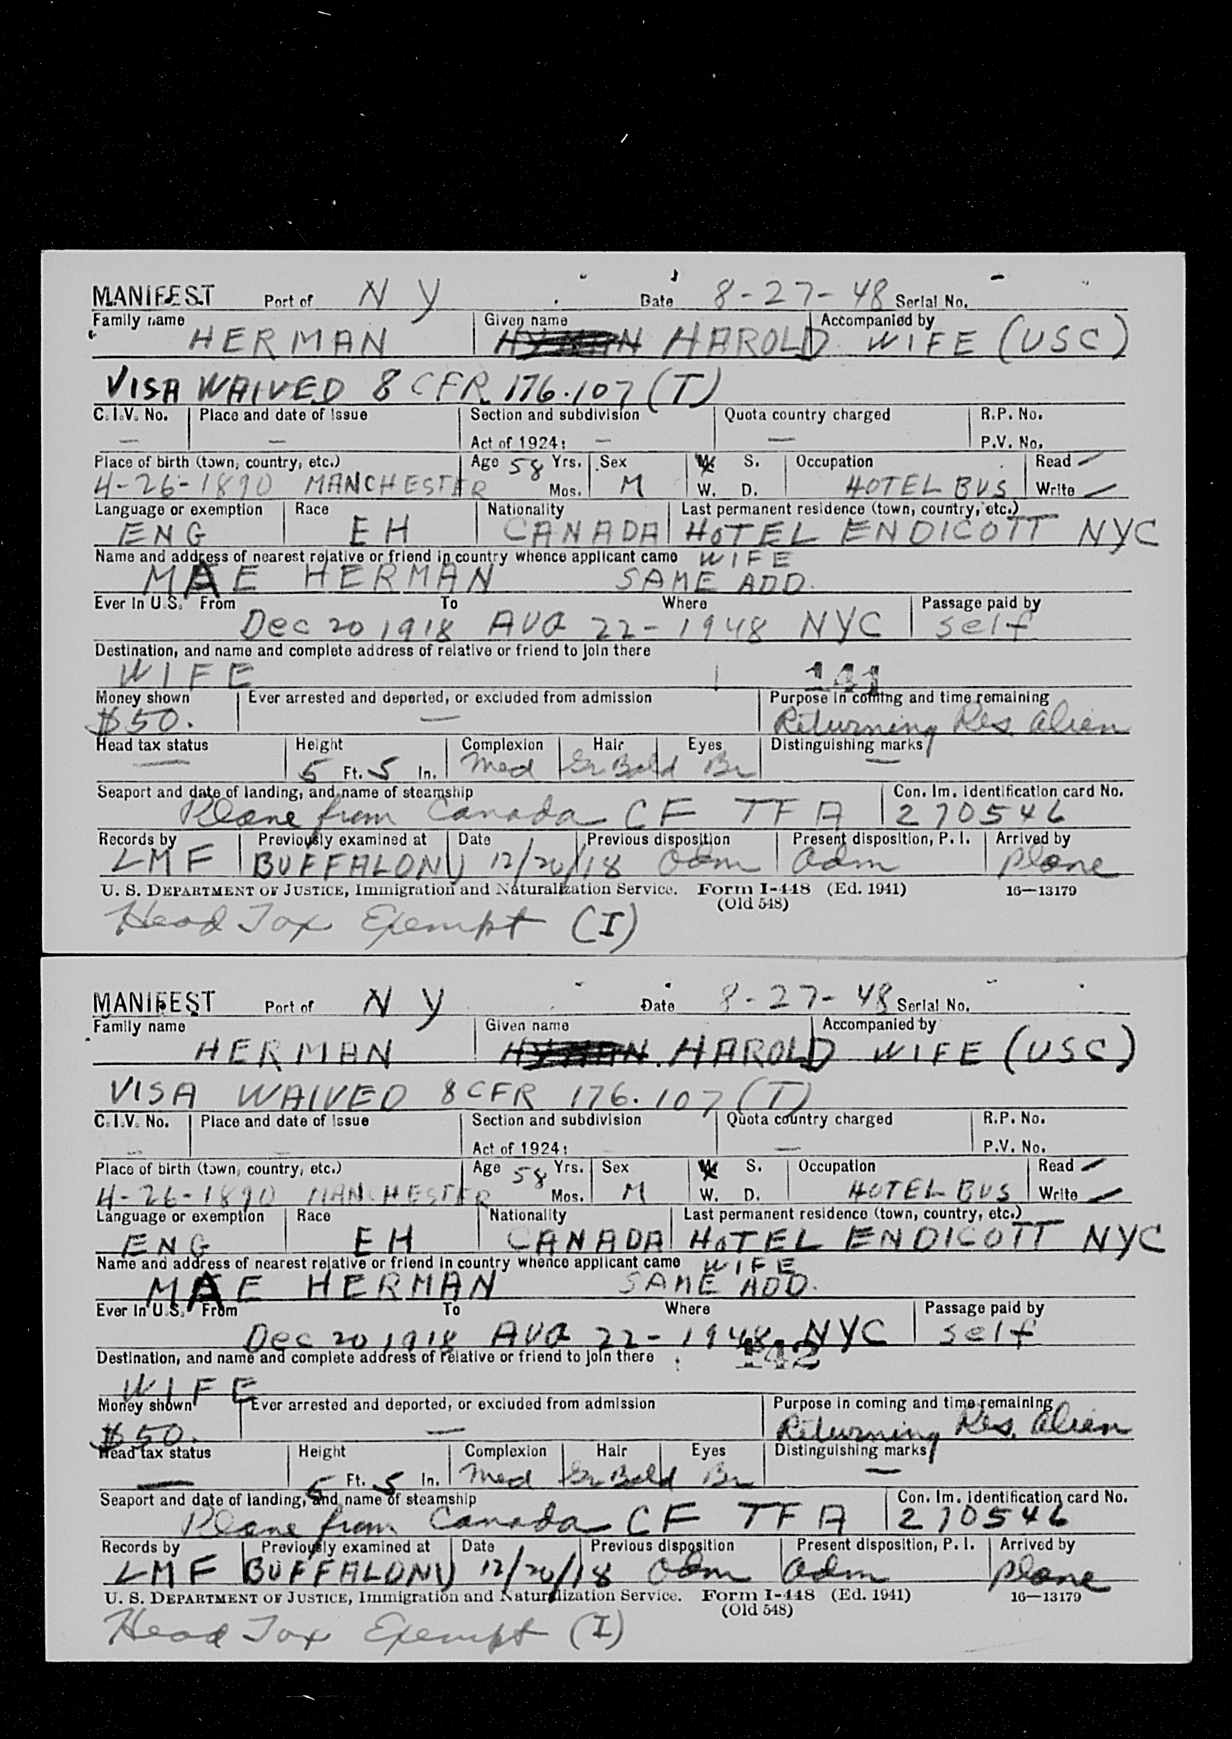 MANIFEST Port of N Y Date 8-27-48 Serial No.
Family name Given name Accompanied by
HERMAN HYMAN HAROLD WIFE (USC)
VISA WAIVED 8 CFR 176.107 (T)
C.I.V. No. Place and date of issue Section and subdivision Quota country charged R.P. No.
— — Act of 1924: — — P.V. No.
Place of birth (town, country, etc.) Age 58 Yrs. Sex M. S. Occupation Read
4-26-1890 MANCHESTER Mos. M W. D. HOTEL BUS Write
Language or exemption Race Nationality Last permanent residence (town, country, etc.)
ENG EH CANADA HOTEL ENDICOTT NYC
Name and address of nearest relative or friend in country whence applicant came WIFE
MAE HERMAN SAME ADD.
Ever in U.S. From To Where Passage paid by
Dec 20 1918 AUG 22-1948 NYC self
Destination, and name and complete address of relative or friend to join there
WIFE 141
Money shown Ever arrested and deported, or excluded from admission Purpose in coming and time remaining
$50. — Returning Res. Alien
Head tax status Height Complexion Hair Eyes Distinguishing marks
— 5 Ft. 5 In. Med Gr Bald Br —
Seaport and date of landing, and name of steamship Con. Im. identification card No.
Plane from Canada CF TFA 270546
Records by Previously examined at Date Previous disposition Present disposition, P. I. Arrived by
LMF BUFFALO NY 12/20/18 adm adm plane
U. S. DEPARTMENT OF JUSTICE, Immigration and Naturalization Service. Form I-448 (Ed. 1941) 16—13179
(Old 548)
Head Tax Exempt (I)
MANIFEST Port of N Y Date 8-27-48 Serial No.
Family name Given name Accompanied by
HERMAN HYMAN HAROLD WIFE (USC)
VISA WAIVED 8 CFR 176.107 (T)
C.I.V. No. Place and date of issue Section and subdivision Quota country charged R.P. No.
— — Act of 1924: — — P.V. No.
Place of birth (town, country, etc.) Age 58 Yrs. Sex M. S. Occupation Read
4-26-1890 MANCHESTER Mos. M W. D. HOTEL BUS Write
Language or exemption Race Nationality Last permanent residence (town, country, etc.)
ENG EH CANADA HOTEL ENDICOTT NYC
Name and address of nearest relative or friend in country whence applicant came WIFE
MAE HERMAN SAME ADD.
Ever in U.S. From To Where Passage paid by
Dec 20 1918 AUG 22-1948 NYC self
Destination, and name and complete address of relative or friend to join there 142
WIFE
Money shown Ever arrested and deported, or excluded from admission Purpose in coming and time remaining
$50. — Returning Res. Alien
Head tax status Height Complexion Hair Eyes Distinguishing marks
— 5 Ft. 5 In. Med Gr Bald Br —
Seaport and date of landing, and name of steamship Con. Im. identification card No.
Plane from Canada CF TFA 270546
Records by Previously examined at Date Previous disposition Present disposition, P. I. Arrived by
LMF BUFFALO NY 12/20/18 adm adm plane
U. S. DEPARTMENT OF JUSTICE, Immigration and Naturalization Service. Form I-448 (Ed. 1941) 16—13179
(Old 548)
Head Tax Exempt (I)